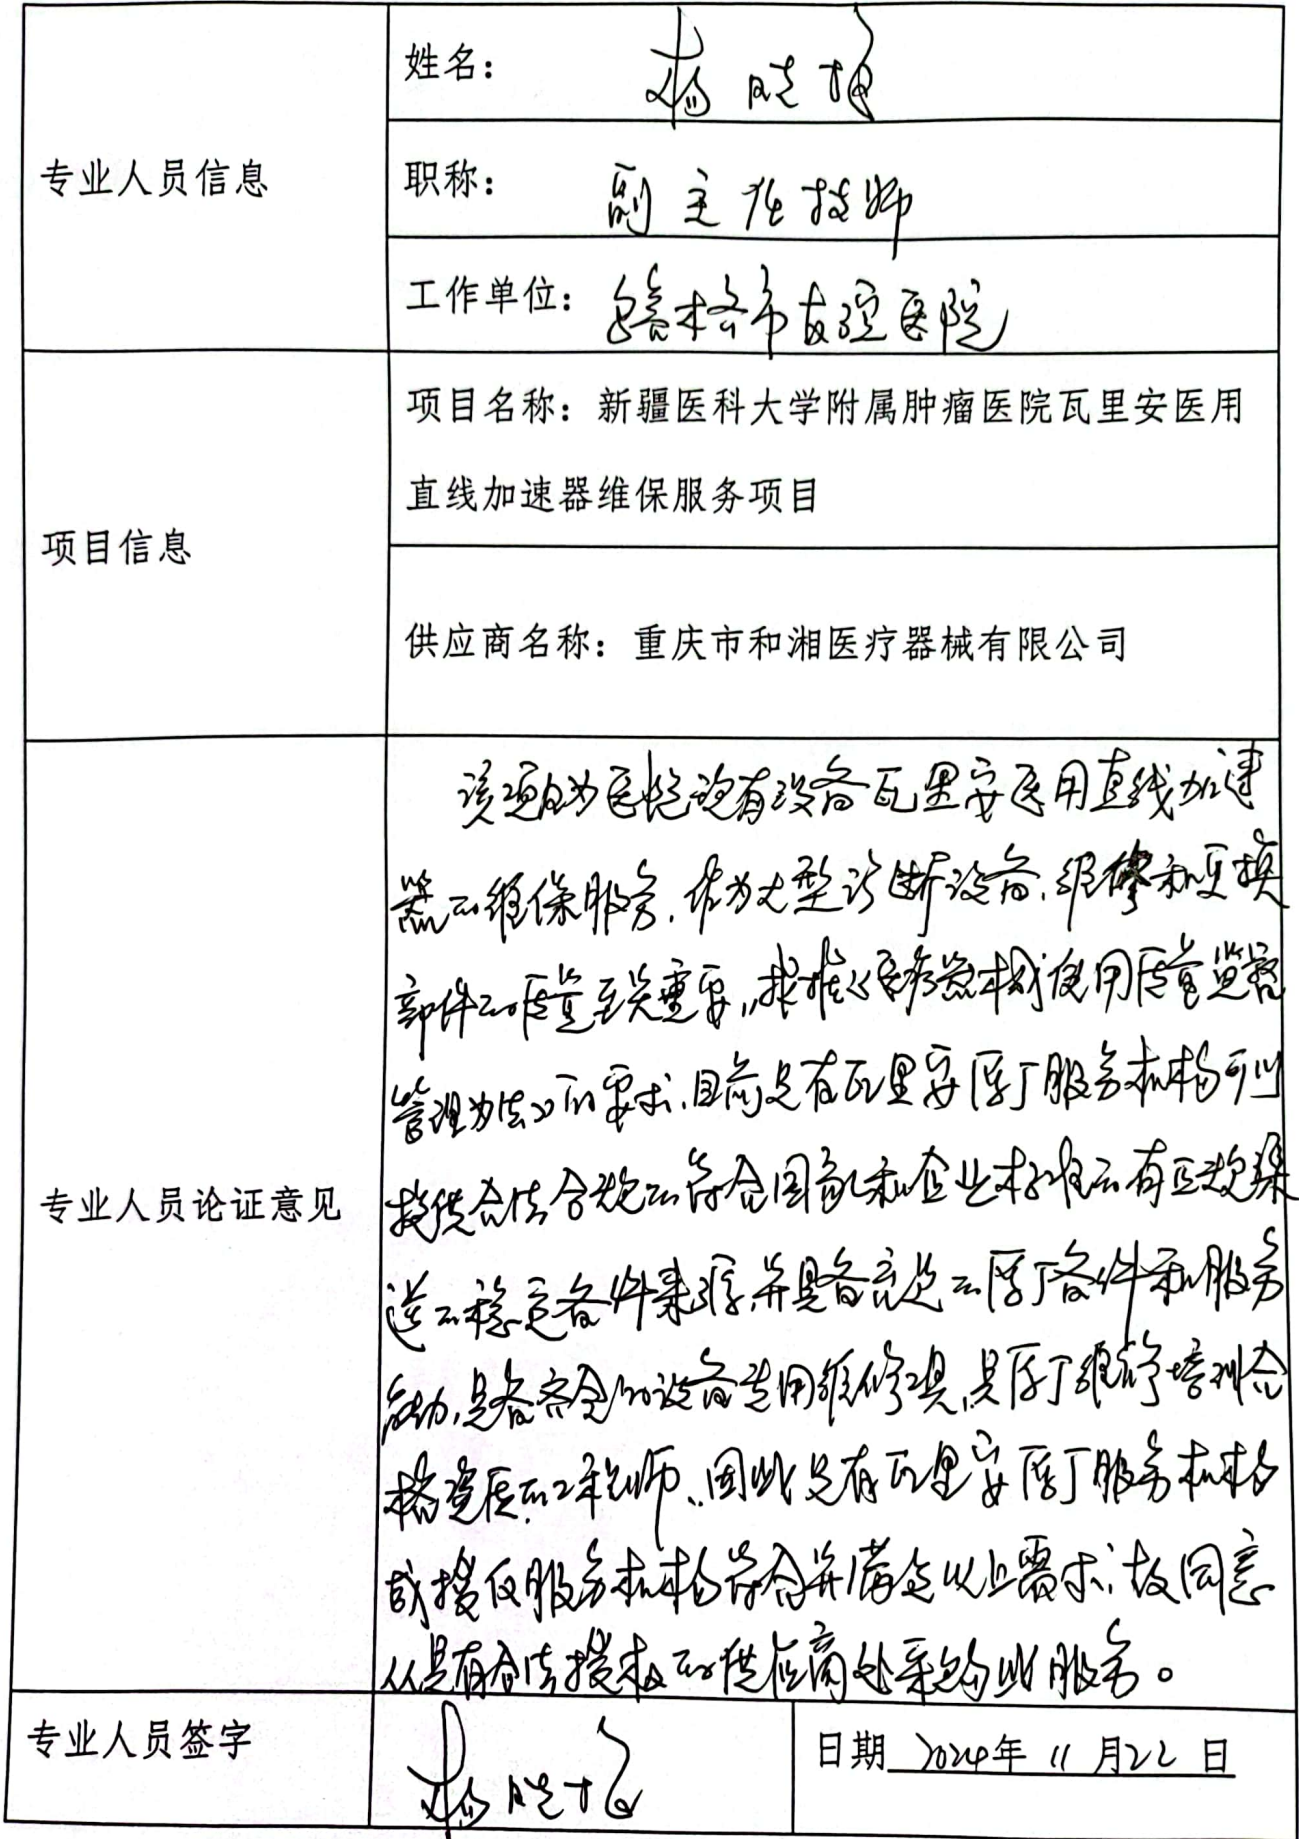 专业人员信息
姓名：杨晓梅
职称：副主任技师
工作单位：乌鲁木齐市友谊医院
项目信息
项目名称：新疆医科大学附属肿瘤医院瓦里安医用
直线加速器维保服务项目
供应商名称：重庆市和湘医疗器械有限公司
专业人员论证意见
该项目为医院现有设备瓦里安医用直线加速
器的维保服务，作为大型诊断设备，维修和更换
部件的质量至关重要，按照《医疗器械使用质量监督
管理办法》的要求，目前只有瓦里安原厂服务机构可以
提供合法合规的符合国家和企业标准的有正规渠
道的稳定备件来源，并具备充足的原厂备件和服务
能力，具备齐全的设备专用维修工具，具原厂维修培训合
格资质的工程师，因此只有瓦里安原厂服务机构
或授权服务机构符合并满足以上需求，故同意
从具有合法授权的供应商处采购此服务。
专业人员签字
杨晓梅
日期 2024年 11 月22 日